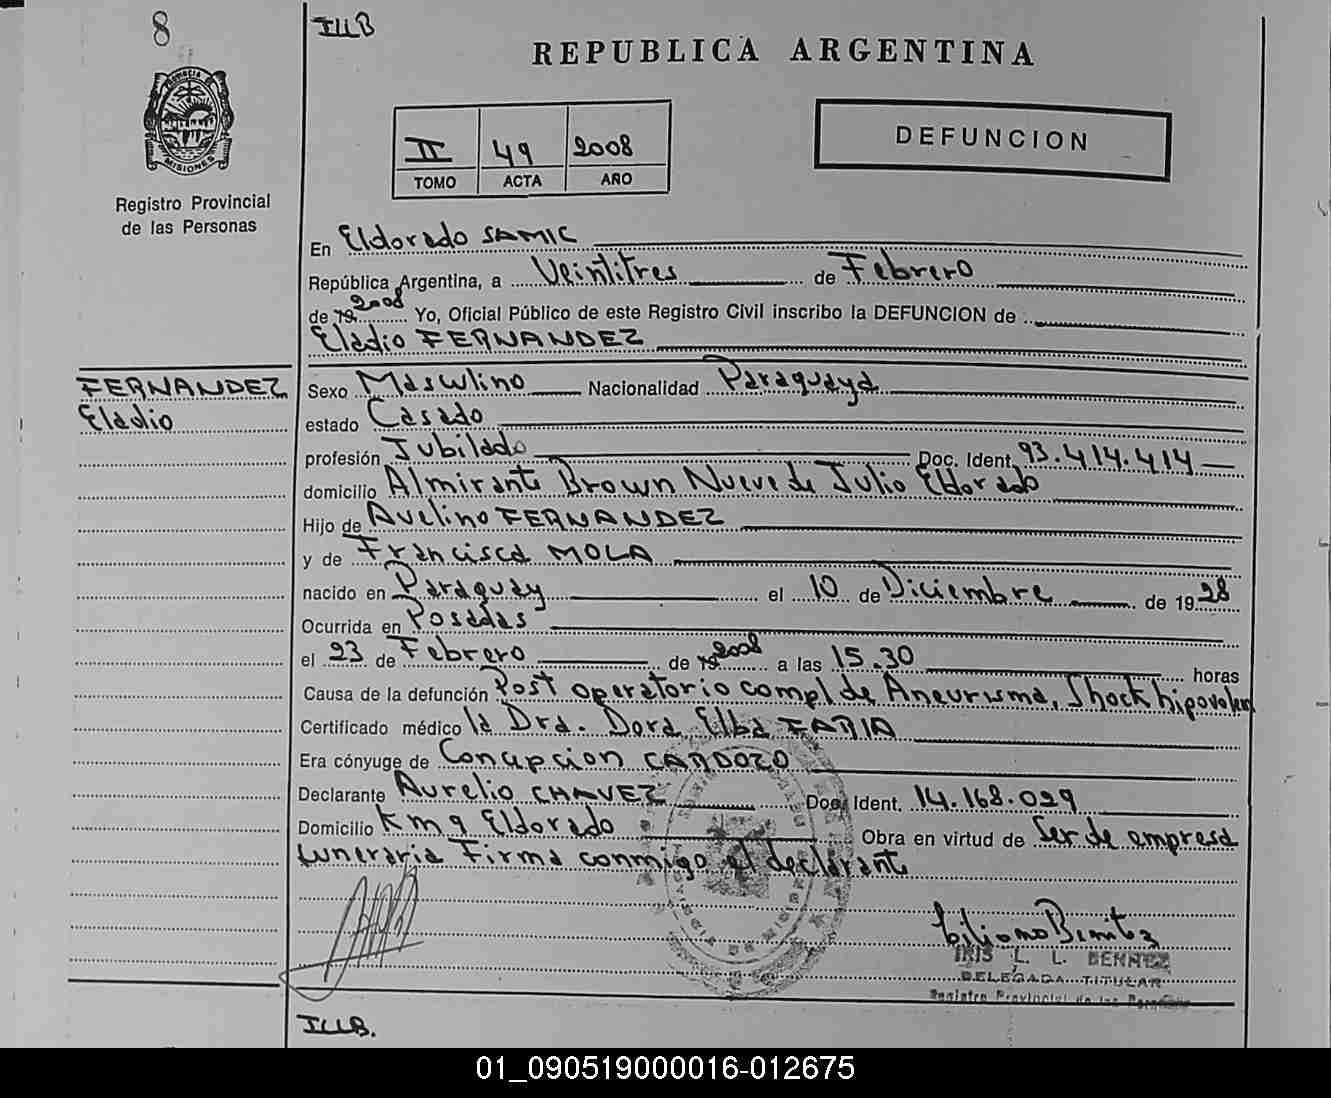 8
ILLB
REPUBLICA ARGENTINA
MISIONES
II 49 2008
TOMO ACTA AÑO
DEFUNCION
Registro Provincial
de las Personas
En Eldorado SAMIC
República Argentina, a Veintitres de Febrero
de 19 2008 Yo, Oficial Público de este Registro Civil inscribo la DEFUNCION de
Eladio FERNANDEZ
FERNANDEZ
Eladio
Sexo Masculino Nacionalidad Paraguaya
estado Casado
profesión Jubilado Doc. Ident. 93.414.414
domicilio Almirante Brown Nueve de Julio Eldorado
Hijo de Avelino FERNANDEZ
y de Francisca MOLA
nacido en Paraguay el 10 de Diciembre de 1928
Ocurrida en Posadas
el 23 de Febrero de 19 2008 a las 15.30 horas
Causa de la defunción Post operatorio compl de Aneurisma, Shock hipovolem
Certificado médico la Dra. Dora Elba FARIA
Era cónyuge de Concepcion CARDOZO
Declarante Aurelio CHAVEZ Doc. Ident. 14.168.029
Domicilio Km 9 Eldorado Obra en virtud de Ser de empresa
funeraria Firma conmigo el declarante
Benitez
IRIS L. L. BENITEZ
DELEGADA TITULAR
Registro Provincial de las Personas
ILLB.
01_090519000016-012675